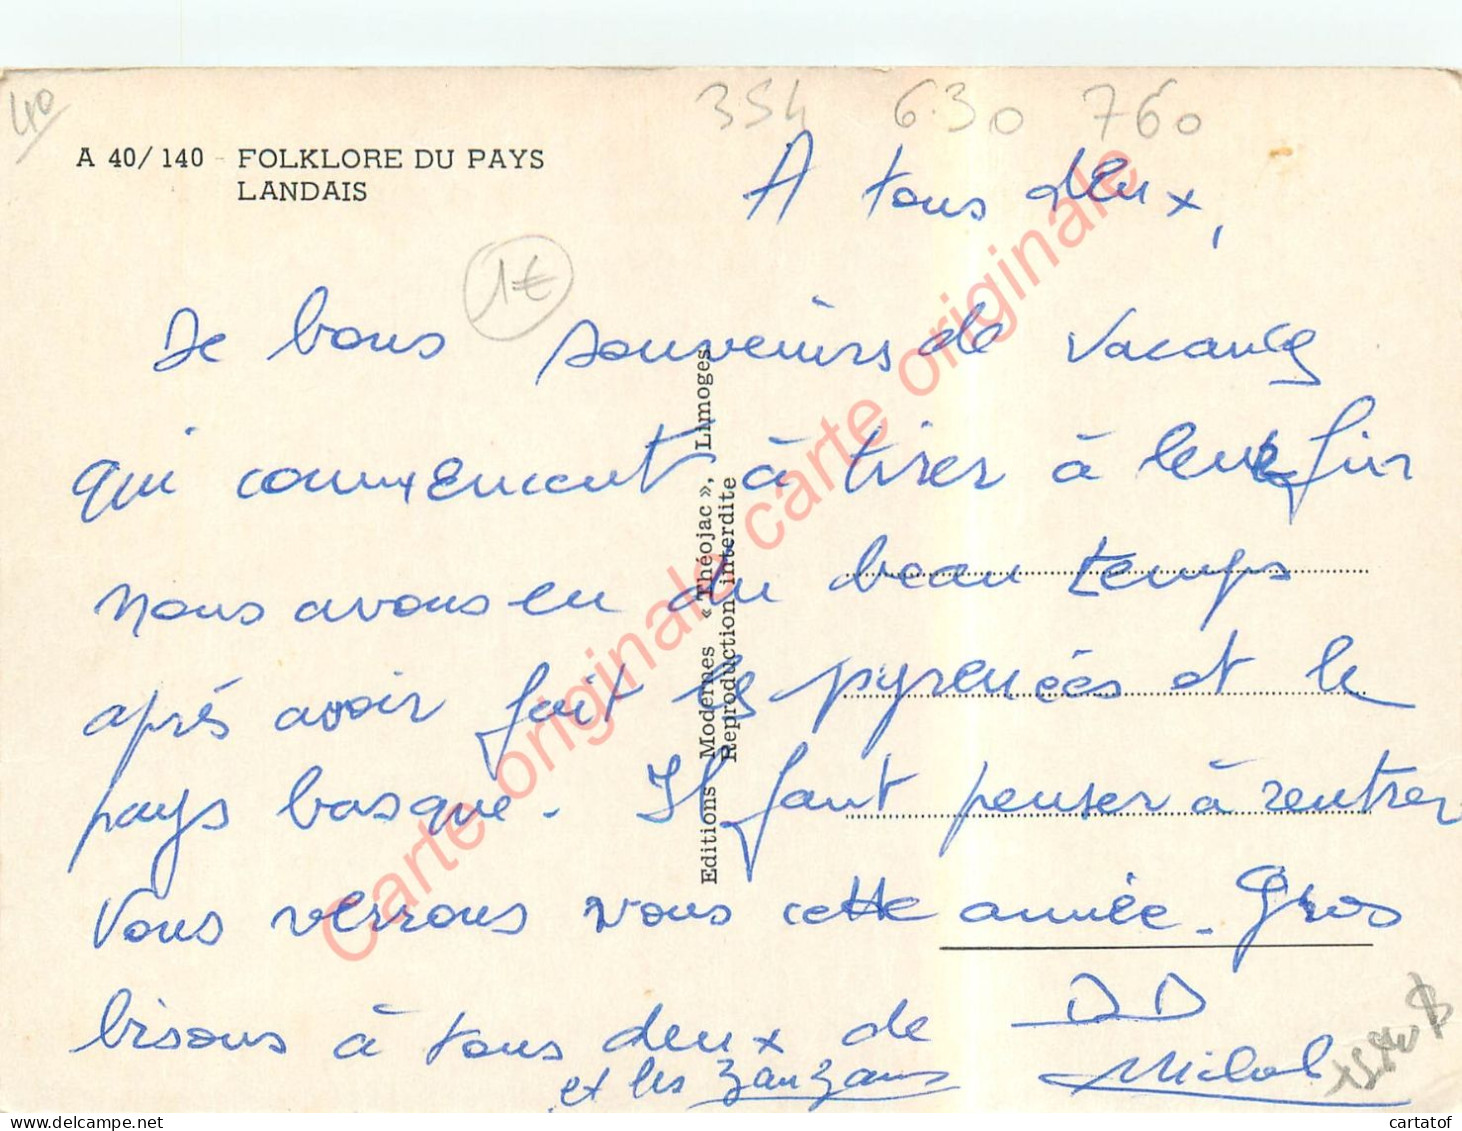 40
354 630 760
A 40/140 - FOLKLORE DU PAYS
LANDAIS
1€
A tous deux,
De bons souvenirs de vacances
qui commencent à tirer à leur fin
nous avons eu du beau temps
aprés avoir fait les pyrenées et le
pays basque. Il faut penser à rentrer
Vous verrons nous cette année. Gros
bisous à tous deux de DD
et les zanzans Michel
Editions Modernes « Théojac », Limoges
Reproduction interdite
Carte originale carte originale
cartatof